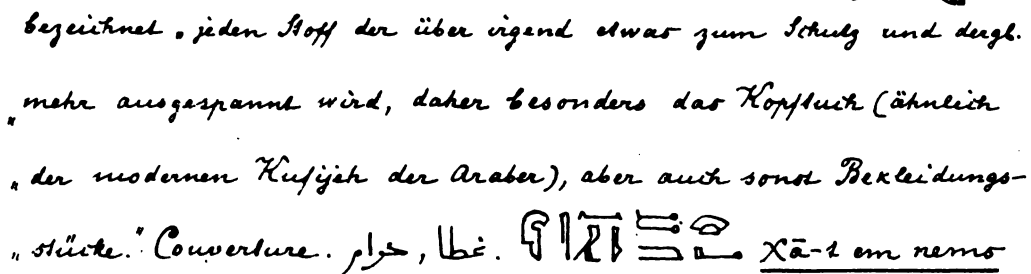 bezeichnet „jeden Stoff der über irgend etwas zum Schutz und dergl.
„mehr ausgespannt wird, daher besonders das Kopftuch (ähnlich
„der modernen Kufijeh der Araber), aber auch sonst Bekleidungs-
„stücke.“ Couverture. غطا, حرام. Xā-t em nemo